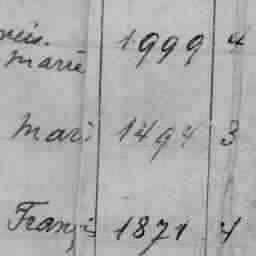 Marie 1999 4
Mari 1494 3
Franç 1871 4